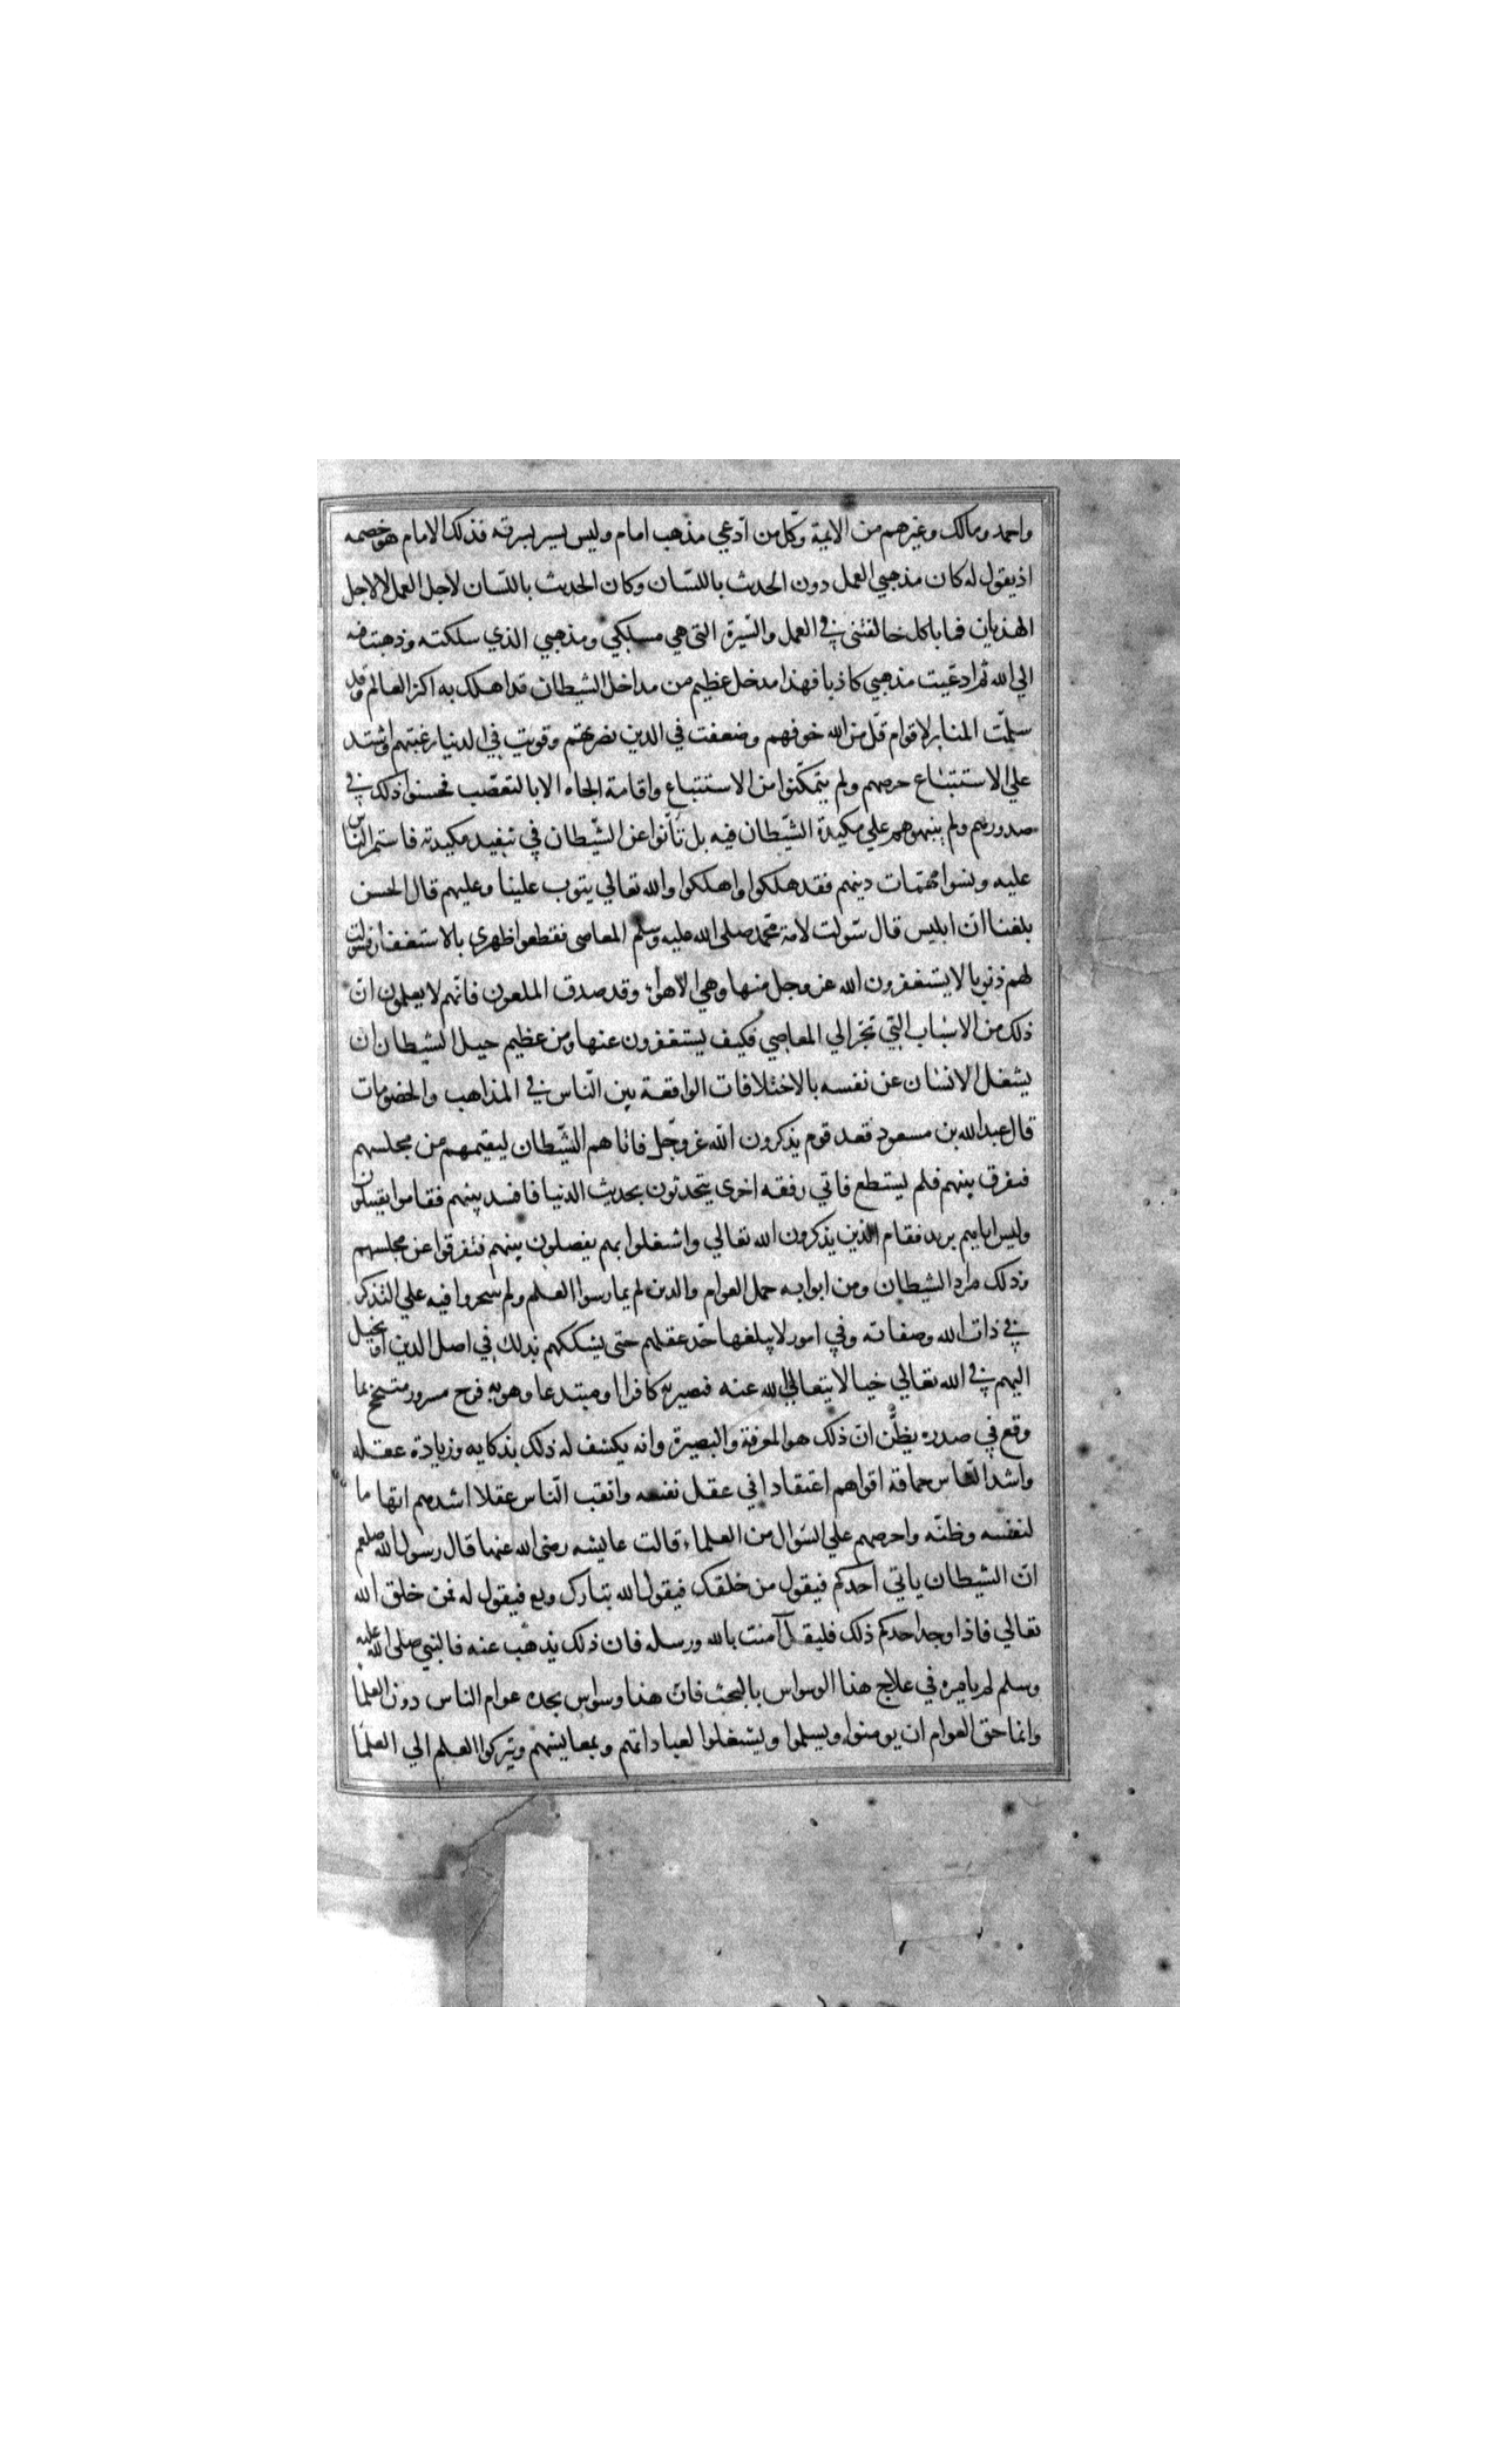 واحمد ومالك وغيرهم من الايمة وكل من ادعي مذهب امام وليس يسير بسرته فذلك الامام هو خصمه
اذ يقول له كان مذهبي العمل دون الحديث باللسان وكان الحديث باللسان لاجل العمل لا لاجل
الهذيان فما بالك خالفتني في العمل والسيرة التي هي مسلكي ومذهبي الذي سلكته وذهبت فيه
الي الله ثم ادعيت مذهبي كاذبا فهذا مدخل عظيم من مداخل الشيطان قد اهلك به اكثر العالم وقد
سلمت المنابر لاقوام قل من الله خوفهم وضعفت في الدين بصيرتهم وقويت في الدنيا رغبتهم واشتد
علي الاستتباع حرصهم ولم يتمكنوا من الاستتباع واقامة الجاه الا بالتعصب فحسنوا ذلك في
صدورهم ولم ينبهوهم علي مكيدة الشيطان فيه بل نابوا عن الشيطان في تنفيذ مكيدته فاستمر الناس
عليه ونسوا مهمات دينهم فقد هلكوا واهلكوا والله تعالي يتوب علينا وعليهم قال الحسن
بلغنا ان ابليس قال سولت لامة محمد صلى الله عليه وسلم المعاصى فقطعوا ظهري بالاستغفار فسولت
لهم ذنوبا لا يستغفرون الله عز وجل منها وهي الاهواء وقد صدق الملعون فانهم لا يعلمون ان
ذلك من الاسباب التي تجر الي المعاصي فكيف يستغفرون عنها ومن عظيم حيل الشيطان ان
يشغل الانسان عن نفسه بالاختلافات الواقعة بين الناس في المذاهب والخصومات
قال عبد الله بن مسعود قعد قوم يذكرون الله عز وجل فاتاهم الشيطان ليقيمهم من مجلسهم
فيفرق بينهم فلم يستطع فاتي رفقه اخرى يتحدثون بحديث الدنيا فافسد بينهم فقاموا يقتتلون
وليس اياهم يريد فقام الذين يذكرون الله تعالي واشغلوا بهم يفصلون بينهم فتفرقوا عن مجلسهم
وذلك مراد الشيطان ومن ابوابه حمل العوام والذين لم يمارسوا العلم ولم يتبحروا فيه علي التذكر
في ذات الله وصفاته وفي امور لا يبلغها حد عقلهم حتى يشككهم بذلك في اصل الدين او يخيل
اليهم في الله تعالي خيالا يتعالي الله عنه فيصير به كافرا او مبتدعا وهو به فرح مسرور بما
وقع في صدره يظن ان ذلك هو المعرفة والبصيرة وانه يكشف له ذلك بذكايه وزيادة عقله
واشد الناس حماقة اقواهم اعتقادا في عقل نفسه واثقب الناس عقلا اشدهم اتهاما
لنفسه وظنه واحرصهم علي السؤال من العلماء قالت عايشه رضى الله عنها قال رسول الله صلعم
ان الشيطان ياتي احدكم فيقول من خلقك فيقول الله تبارك وتع فيقول له فمن خلق الله
تعالي فاذا وجد احدكم ذلك فليقل آمنت بالله ورسله فان ذلك يذهب عنه فالنبي صلى الله عليه
وسلم لم يامره في علاج هذا الوسواس بالبحث فان هذا وسواس يجده عوام الناس دون العلما
وانما حق العوام ان يومنوا ويسلموا ويشتغلوا لعباداتهم وبمعايشهم ويتركوا العلم الي العلما